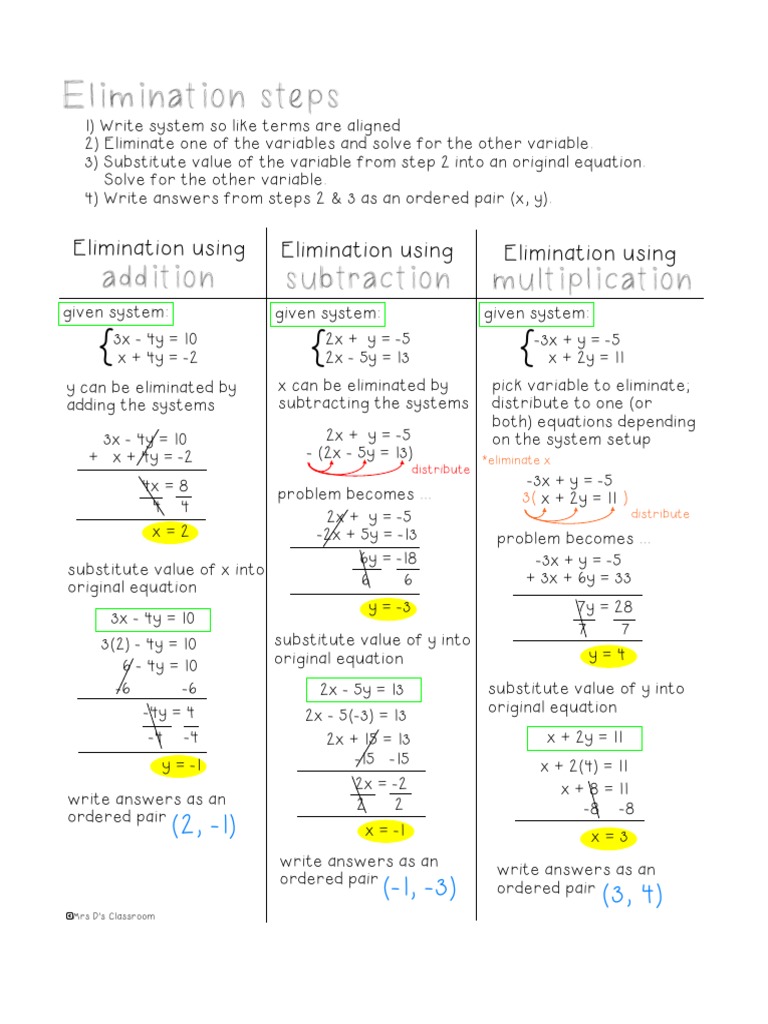 Elimination steps
1) Write system so like terms are aligned
2) Eliminate one of the variables and solve for the other variable.
3) Substitute value of the variable from step 2 into an original equation.
Solve for the other variable.
4) Write answers from steps 2 & 3 as an ordered pair (x, y).
Elimination using
addition
given system:
3x - 4y = 10
x + 4y = -2
y can be eliminated by
adding the systems
3x - 4y = 10
+ x + 4y = -2
4x = 8
4 4
x = 2
substitute value of x into
original equation
3x - 4y = 10
3(2) - 4y = 10
6 - 4y = 10
-6 -6
-4y = 4
-4 -4
y = -1
write answers as an
ordered pair (2, -1)
Elimination using
subtraction
given system:
2x + y = -5
2x - 5y = 13
x can be eliminated by
subtracting the systems
2x + y = -5
- (2x - 5y = 13)
distribute
problem becomes ...
2x + y = -5
-2x + 5y = -13
6y = -18
6 6
y = -3
substitute value of y into
original equation
2x - 5y = 13
2x - 5(-3) = 13
2x + 15 = 13
-15 -15
2x = -2
2 2
x = -1
write answers as an
ordered pair (-1, -3)
Elimination using
multiplication
given system:
-3x + y = -5
x + 2y = 11
pick variable to eliminate;
distribute to one (or
both) equations depending
on the system setup
*eliminate x
-3x + y = -5
3( x + 2y = 11 )
distribute
problem becomes ...
-3x + y = -5
+ 3x + 6y = 33
7y = 28
7 7
y = 4
substitute value of y into
original equation
x + 2y = 11
x + 2(4) = 11
x + 8 = 11
-8 -8
x = 3
write answers as an
ordered pair (3, 4)
©Mrs D's Classroom